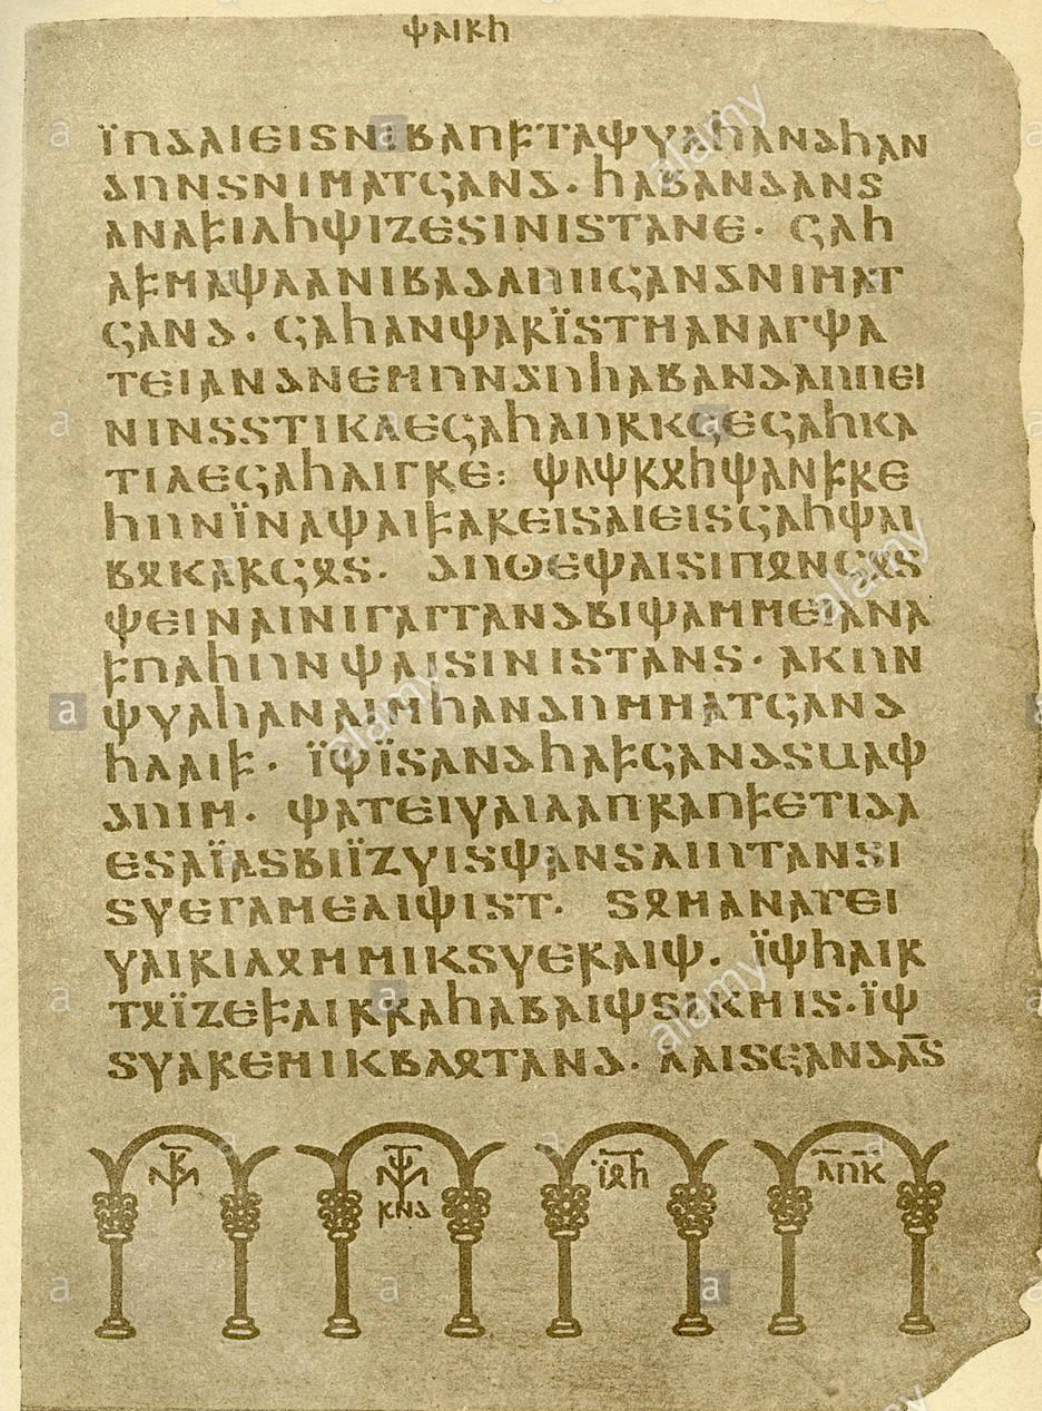 𐌸𐌰𐌹𐍂𐌷
𐌹̈𐌿𐌳𐌰𐌹𐌴𐌹𐍃𐌽𐌹𐌱𐌰𐌿𐍆𐍄𐌰𐌸𐍅𐌰𐌷𐌰𐌽𐌳𐌷𐌰𐌽
𐌳𐌿𐌽𐍃𐌽𐌹𐌼𐌰𐍄𐌾𐌰𐌽𐌳· 𐌷𐌰𐌱𐌰𐌽𐌳𐌰𐌽𐍃
𐌰𐌽𐌰𐍆𐌹𐌻𐌷𐌸𐌹𐌶𐌴𐍃𐌹𐌽𐌹𐍃𐍄𐌰𐌽𐌴· 𐌾𐌰𐌷
𐌰𐍆𐌼𐌰𐌸𐌻𐌰𐌽𐌹𐌱𐌰𐌳𐌰𐌿𐍀𐌾𐌰𐌽𐌳𐌽𐌹𐌼𐌰𐍄
𐌾𐌰𐌽𐌳· 𐌾𐌰𐌷𐌰𐌽𐌸𐌰𐍂𐌹̈𐍃𐍄𐌼𐌰𐌽𐌰𐌲𐌸𐌰
𐍄𐌴𐌹𐌰𐌽𐌳𐌽𐌴𐌼𐌿𐌽𐌳𐌿𐌷𐌰𐌱𐌰𐌽𐌳𐌰𐌿𐍀𐌴𐌹
𐌽𐌹𐌽𐍃𐍃𐍄𐌹𐌺𐌻𐌴𐌾𐌰𐌷𐌰𐌿𐍂𐌺𐌾𐌴𐌾𐌰𐌷𐌺𐌰
𐍄𐌹𐌻𐌴𐌾𐌰𐌷𐌻𐌹𐌲𐍂𐌴: 𐌸𐌰𐌸𐍂𐍉𐌷𐌸𐌰𐌽𐍆𐍂𐌴
𐌷𐌿𐌽𐌹̈𐌽𐌰𐌸𐌰𐌹𐍆𐌰𐍂𐌴𐌹𐍃𐌰𐌹𐌴𐌹𐍃𐌾𐌰𐌷𐌸𐌰𐌹
𐌱𐍉𐌺𐌰𐍂𐌾𐍉𐍃· 𐌳𐌿𐍈𐌴𐌸𐌰𐌹𐍃𐌹𐍀𐍉𐌽𐌾𐍉𐍃
𐌸𐌴𐌹𐌽𐌰𐌹𐌽𐌹𐌲𐌰𐌲𐌲𐌰𐌽𐌳𐌱𐌹𐌸𐌰𐌼𐌼𐌴𐌹𐌰𐌽𐌰
𐍆𐌿𐌻𐌷𐌿𐌽𐌸𐌰𐌹𐍃𐌹𐌽𐌹𐍃𐍄𐌰𐌽𐍃· 𐌰𐌺𐌿𐌽
𐌸𐍅𐌰𐌷𐌰𐌽𐌰𐌹𐌼𐌷𐌰𐌽𐌳𐌿𐌼𐌼𐌰𐍄𐌾𐌰𐌽𐌳
𐌷𐌻𐌰𐌹𐍆· 𐌹̈𐌸𐌹̈𐍃𐌰𐌽𐌳𐌷𐌰𐍆𐌾𐌰𐌽𐌳𐍃𐌵𐌰𐌸
𐌳𐌿𐌹𐌼· 𐌸𐌰𐍄𐌴𐌹𐍅𐌰𐌹𐌻𐌰𐍀𐍂𐌰𐌿𐍆𐌴𐍄𐌹𐌳𐌰
𐌴𐍃𐌰𐌹̈𐌰𐍃𐌱𐌹𐌹̈𐌶𐍅𐌹𐍃𐌸𐌰𐌽𐍃𐌻𐌹𐌿𐍄𐌰𐌽𐍃
𐍃𐍅𐌴𐌲𐌰𐌼𐌴𐌻𐌹𐌸𐌹𐍃𐍄· 𐍃𐍉𐌼𐌰𐌽𐌰𐌲𐌴𐌹
𐍅𐌰𐌹𐍂𐌹𐌻𐍉𐌼𐌼𐌹𐌺𐍃𐍅𐌴𐍂𐌰𐌹𐌸· 𐌹̈𐌸𐌷𐌰𐌹𐍂
𐍄𐍉𐌹̈𐌶𐌴𐍆𐌰𐌹𐍂𐍂𐌰𐌷𐌰𐌱𐌰𐌹𐌸𐍃𐌹𐌺𐌼𐌹𐍃·𐌹̈𐌸
𐍃𐍅𐌰𐍂𐌴𐌼𐌹𐌺𐌱𐌻𐍉𐍄𐌰𐌽𐌳· 𐌻𐌰𐌹𐍃𐌾𐌰𐌽𐌳𐌰̅𐍃
𐌹̈𐍉𐌷 𐌻𐌿𐌺